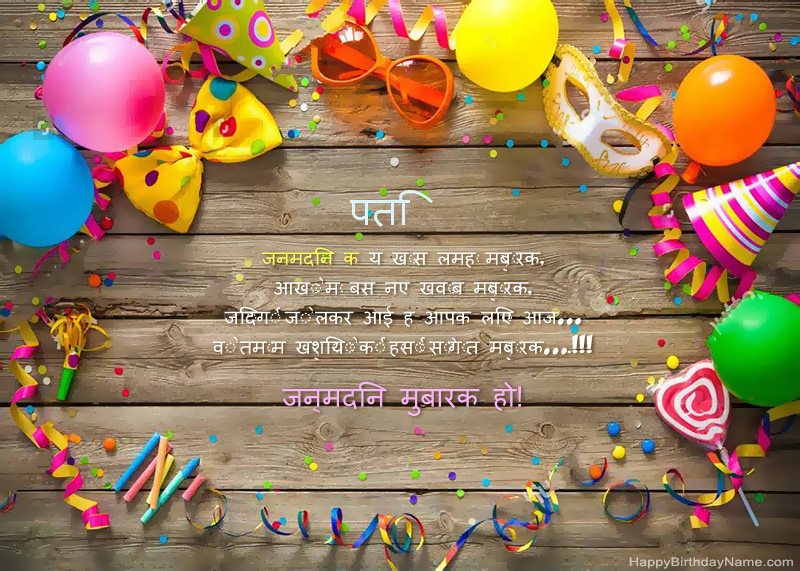 पति
जनमदिन क य ख़ास लमह मुबारक,
आखों म बस नए ख्वाब मुबारक,
जिंदगी जो लेकर आई ह आपक लिए आज...
वो तमाम खुशियों की हसीं सौगात मुबारक....!!!
जन्मदिन मुबारक हो!
HappyBirthdayName.com